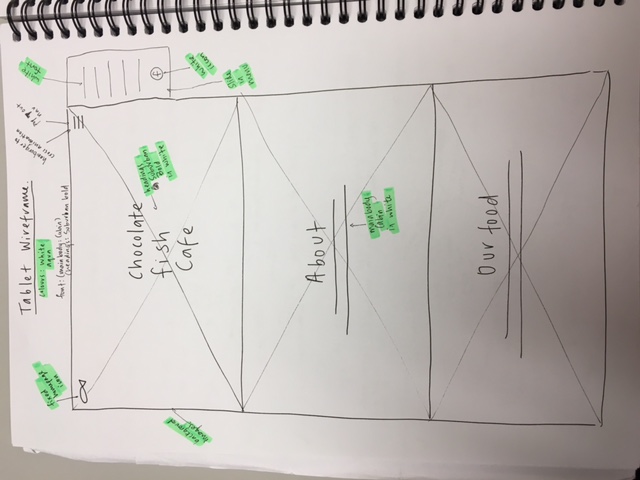 Tablet Wireframe.
colours: white
aqua
font: (main body: Cabin)
(headings: Suburban bold
fixed homepage
icon
hamburger to
cross animation
white
font
Chocolate
fish
Cafe
headings
Suburban
Bold
in white
background
images
f
white
icon
slide
in
menu
About
main body
Cabin
in white
Our food